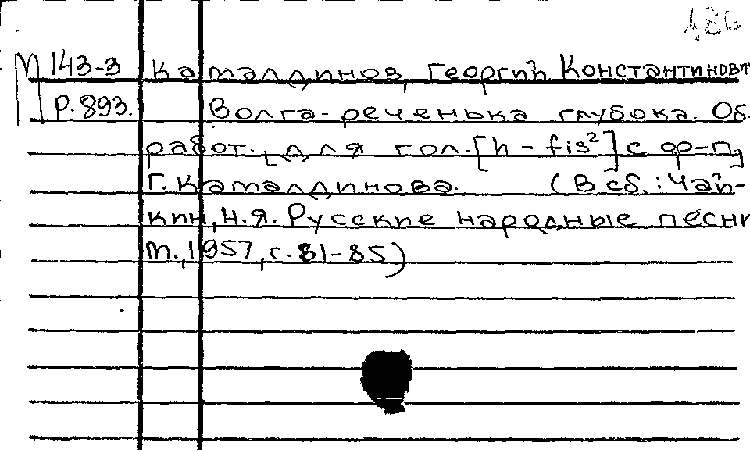 186
М 143-3 Камалдинов, Георгий Константинович
Р.893. Волга-реченька глубока. Об-
работ. для гол. [h - fis²] с ф-п,
Г. Камалдинова. (В сб.: Чай-
кин, Н.Я. Русские народные песни
М., 1957, с. 81-85)